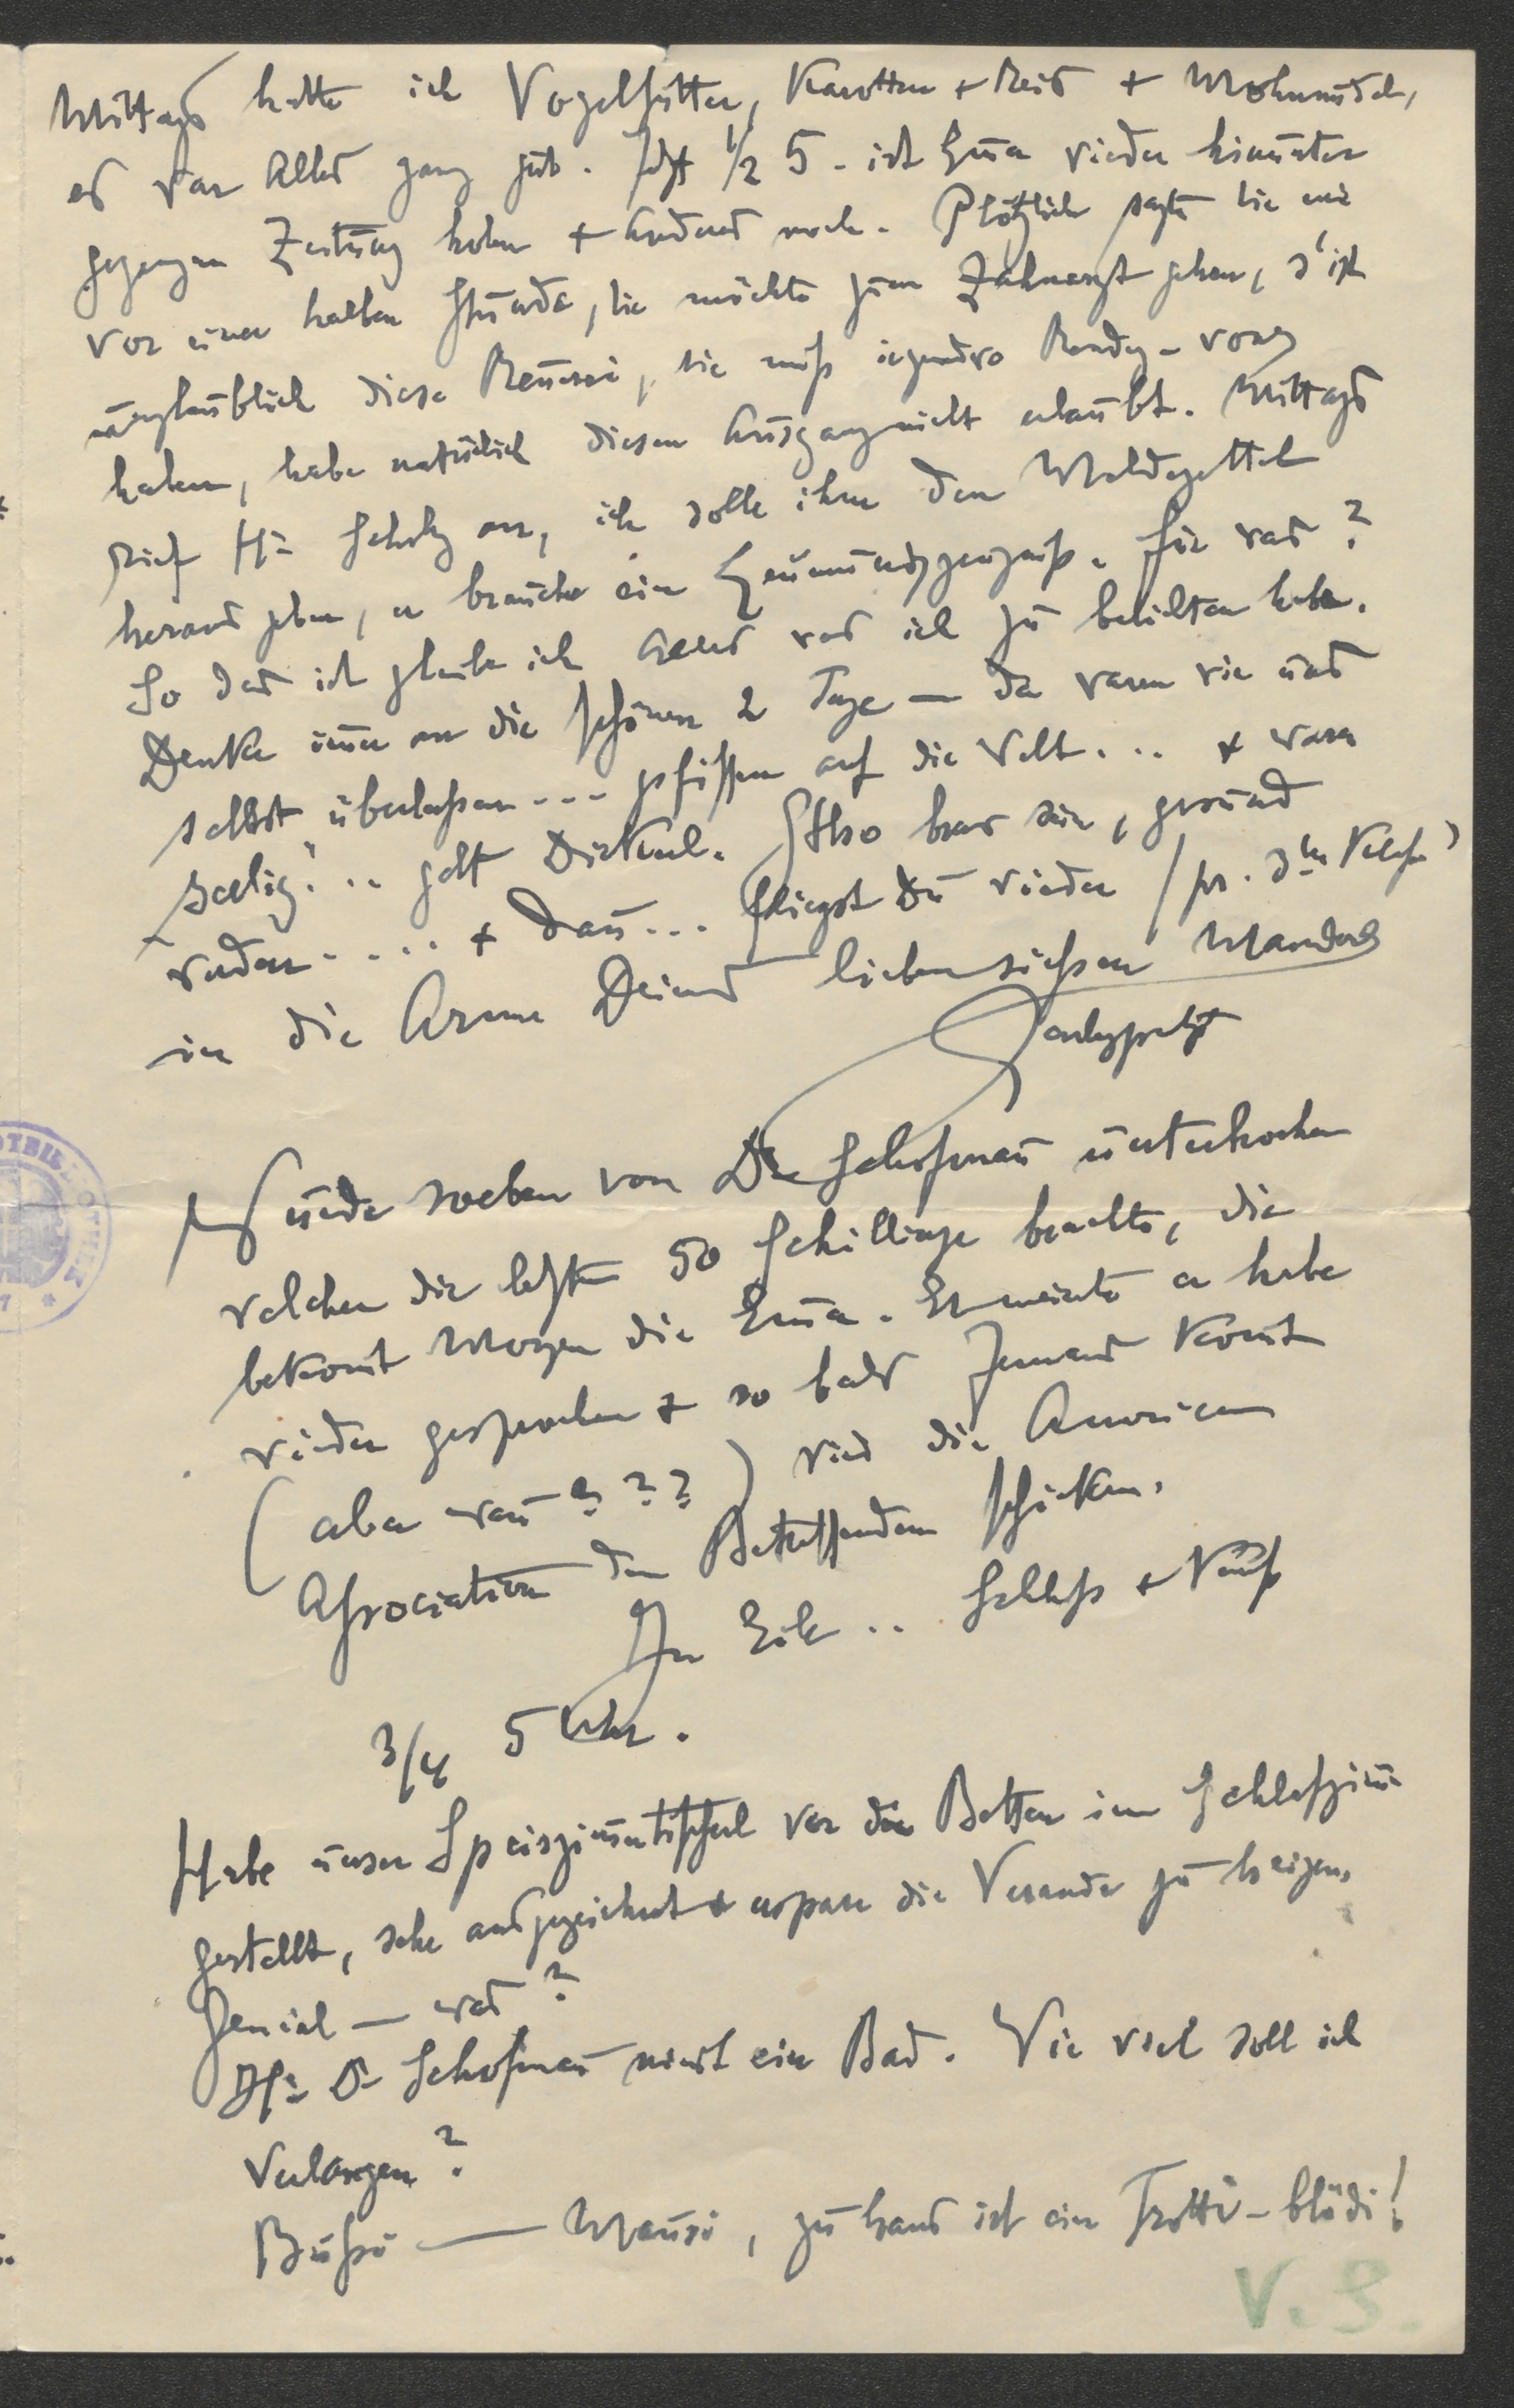 Mittags hatte ich Vogelfutter, Karotten + Reis + Mohnnudel,
es war Alles ganz gut. Jetzt ½ 5 - ist Em̄a wieder hinunter
gegangen Zeitung holen + Anderes noch. Plötzlich sagte sie mir
vor einer halben Stunde, sie möchte zum Zahnarzt gehen, s'ist
unglaublich diese Rennerei, sie muß irgendwo Rendez-vous
haben, habe natürlich diesen Ausgang nicht erlaubt. Mittags
rief Hr Scholz an, ich solle ihm den Meldezettel
heraus geben, er brauche ein Leumundszeugniß. Für was?
So das ist glaube ich Alles was ich zu berichten habe.
Denke im̄er an die schönen 2 Tage — da waren wir uns
selbst überlassen --- pfiffen auf die Welt... + waren
seelig... gelt Dickerl. Also brav sein, gesund
werden.... + dan̄... fliegst Du wieder (pr. 3ter Klasse)
in die Arme Deines liebensüßen Manderls
Wurde soeben von Dr Schofman̄ unterbrochen
welcher die letzten 50 Schillinge brachte, die
bekom̄t Morgen die Em̄a. Er meinte er habe
wieder gesprochen + so bald Jemand kom̄t
(aber wan̄ ? ? ?) wird die American
Association den Betreffenden schicken.
In Eile .. +
3/4 5 Uhr.
Habe unser Speiszim̄ertischerl vor die Betten im Schlafzim̄er
gestellt, sehr ausgezeichnet + erspare die Veranda zu heizen.
Genial — was?
Hr Dr Schofman̄ nim̄t ein Bad. Wie viel soll ich
verlangen?
Bussi — Mausi, zu haus ist ein Trotti-blödi!
V. S.